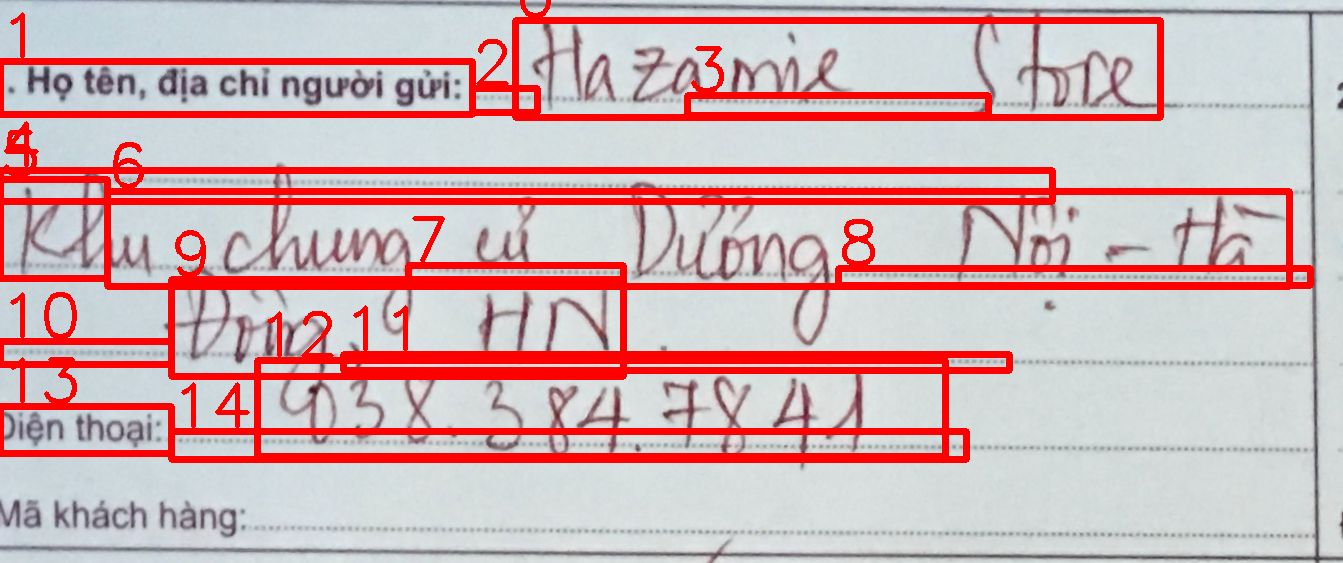 . Họ tên, địa chỉ người gửi: Hazamie Store
Khu chung cư Dương Nội - Hà
Đông, HN.
Điện thoại: 0938.384.7841
Mã khách hàng: